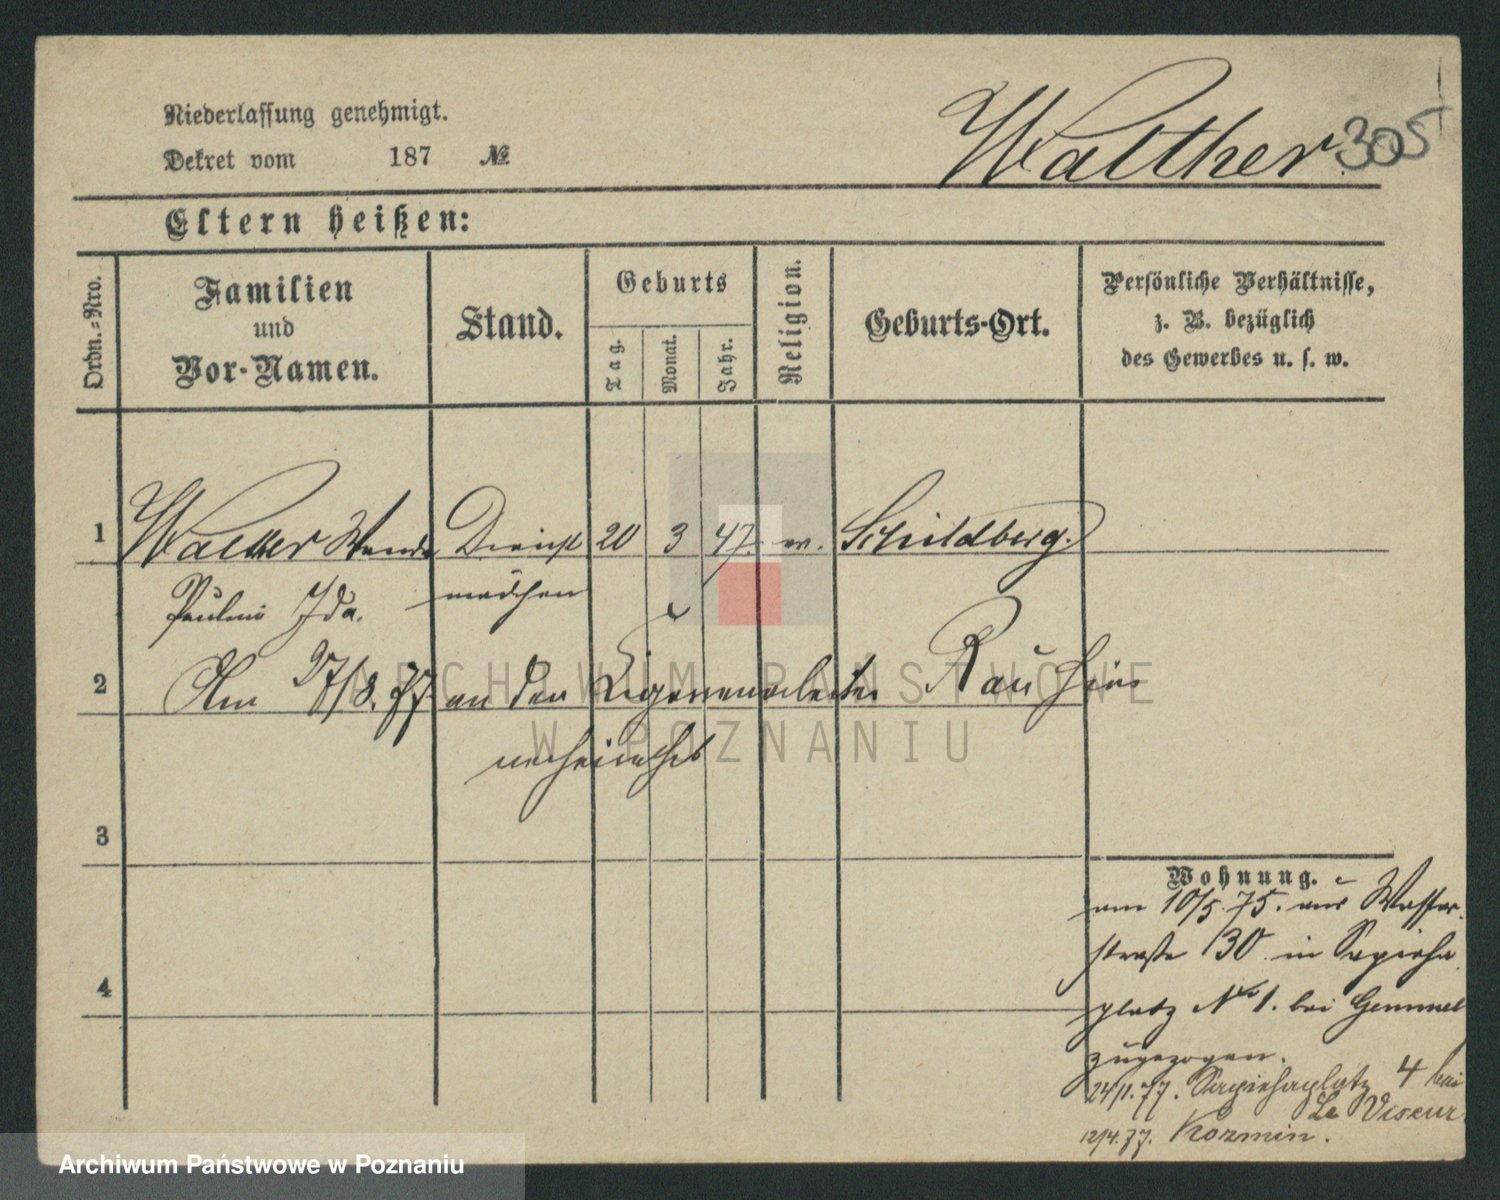 Niederlassung genehmigt.
Dekret vom 187 №
Walther 305
Eltern heißen:
Ordn.-Nro.
Familien
und
Vor-Namen.
Stand.
Geburts
Tag.
Monat.
Jahr.
Religion.
Geburts-Ort.
Persönliche Verhältnisse,
z. B. bezüglich
des Gewerbes u. s. w.
1 Walther Wanda Dienst 20 3 47. ev. Schildberg.
Pauline Ida. mädchen
2 Am 27/8. 77 an den
verheirathet
3
4
Wohnung.
am 10/5. 75. aus Wasser
straße 30. in Sapieha
platz No 1. bei Gemmel
zugezogen.
24/1. 77. Sapiehaplatz 4 bei
Le Viseur
12/4. 77. Kozmin.
ARCHIWUM PAŃSTWOWE
W POZNANIU
Archiwum Państwowe w Poznaniu